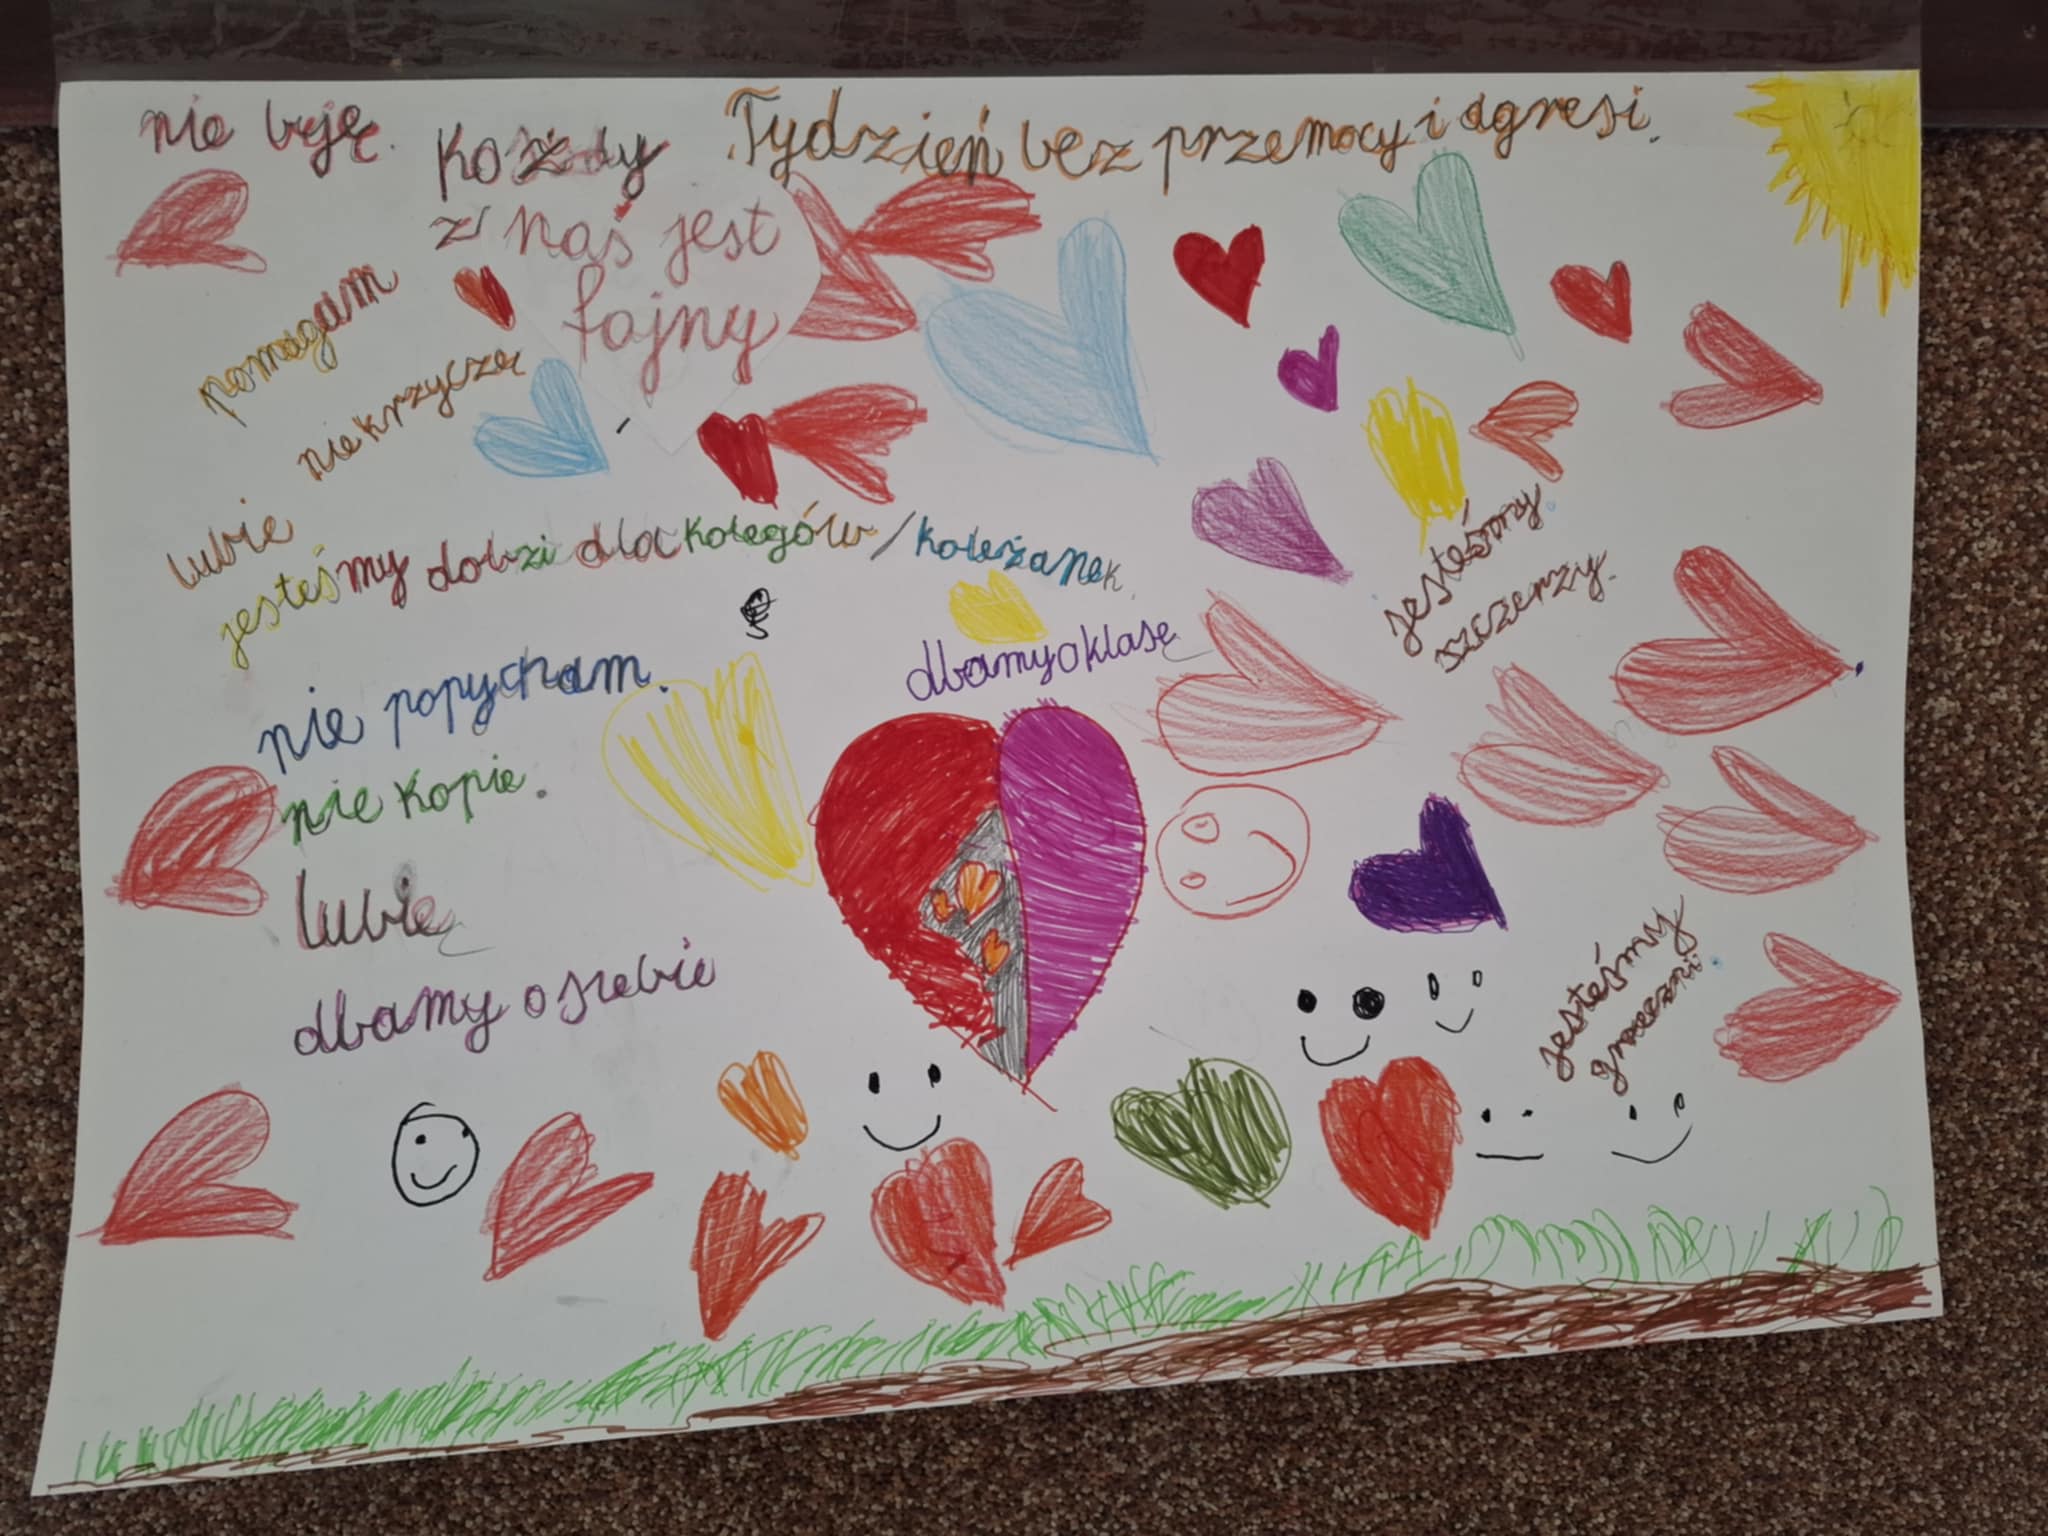 nie biję.
Tydzień bez przemocy i agresi.
Każdy
z nas jest
fajny
pomagam
nie krzyczę
lubie
jesteśmy dobzi dla kolegów/koleżanek.
jesteśmy
szczerzy.
dbamy o klasę
nie popycham.
nie kopie.
lubię
dbamy o siebie
jesteśmy
grzeczni.